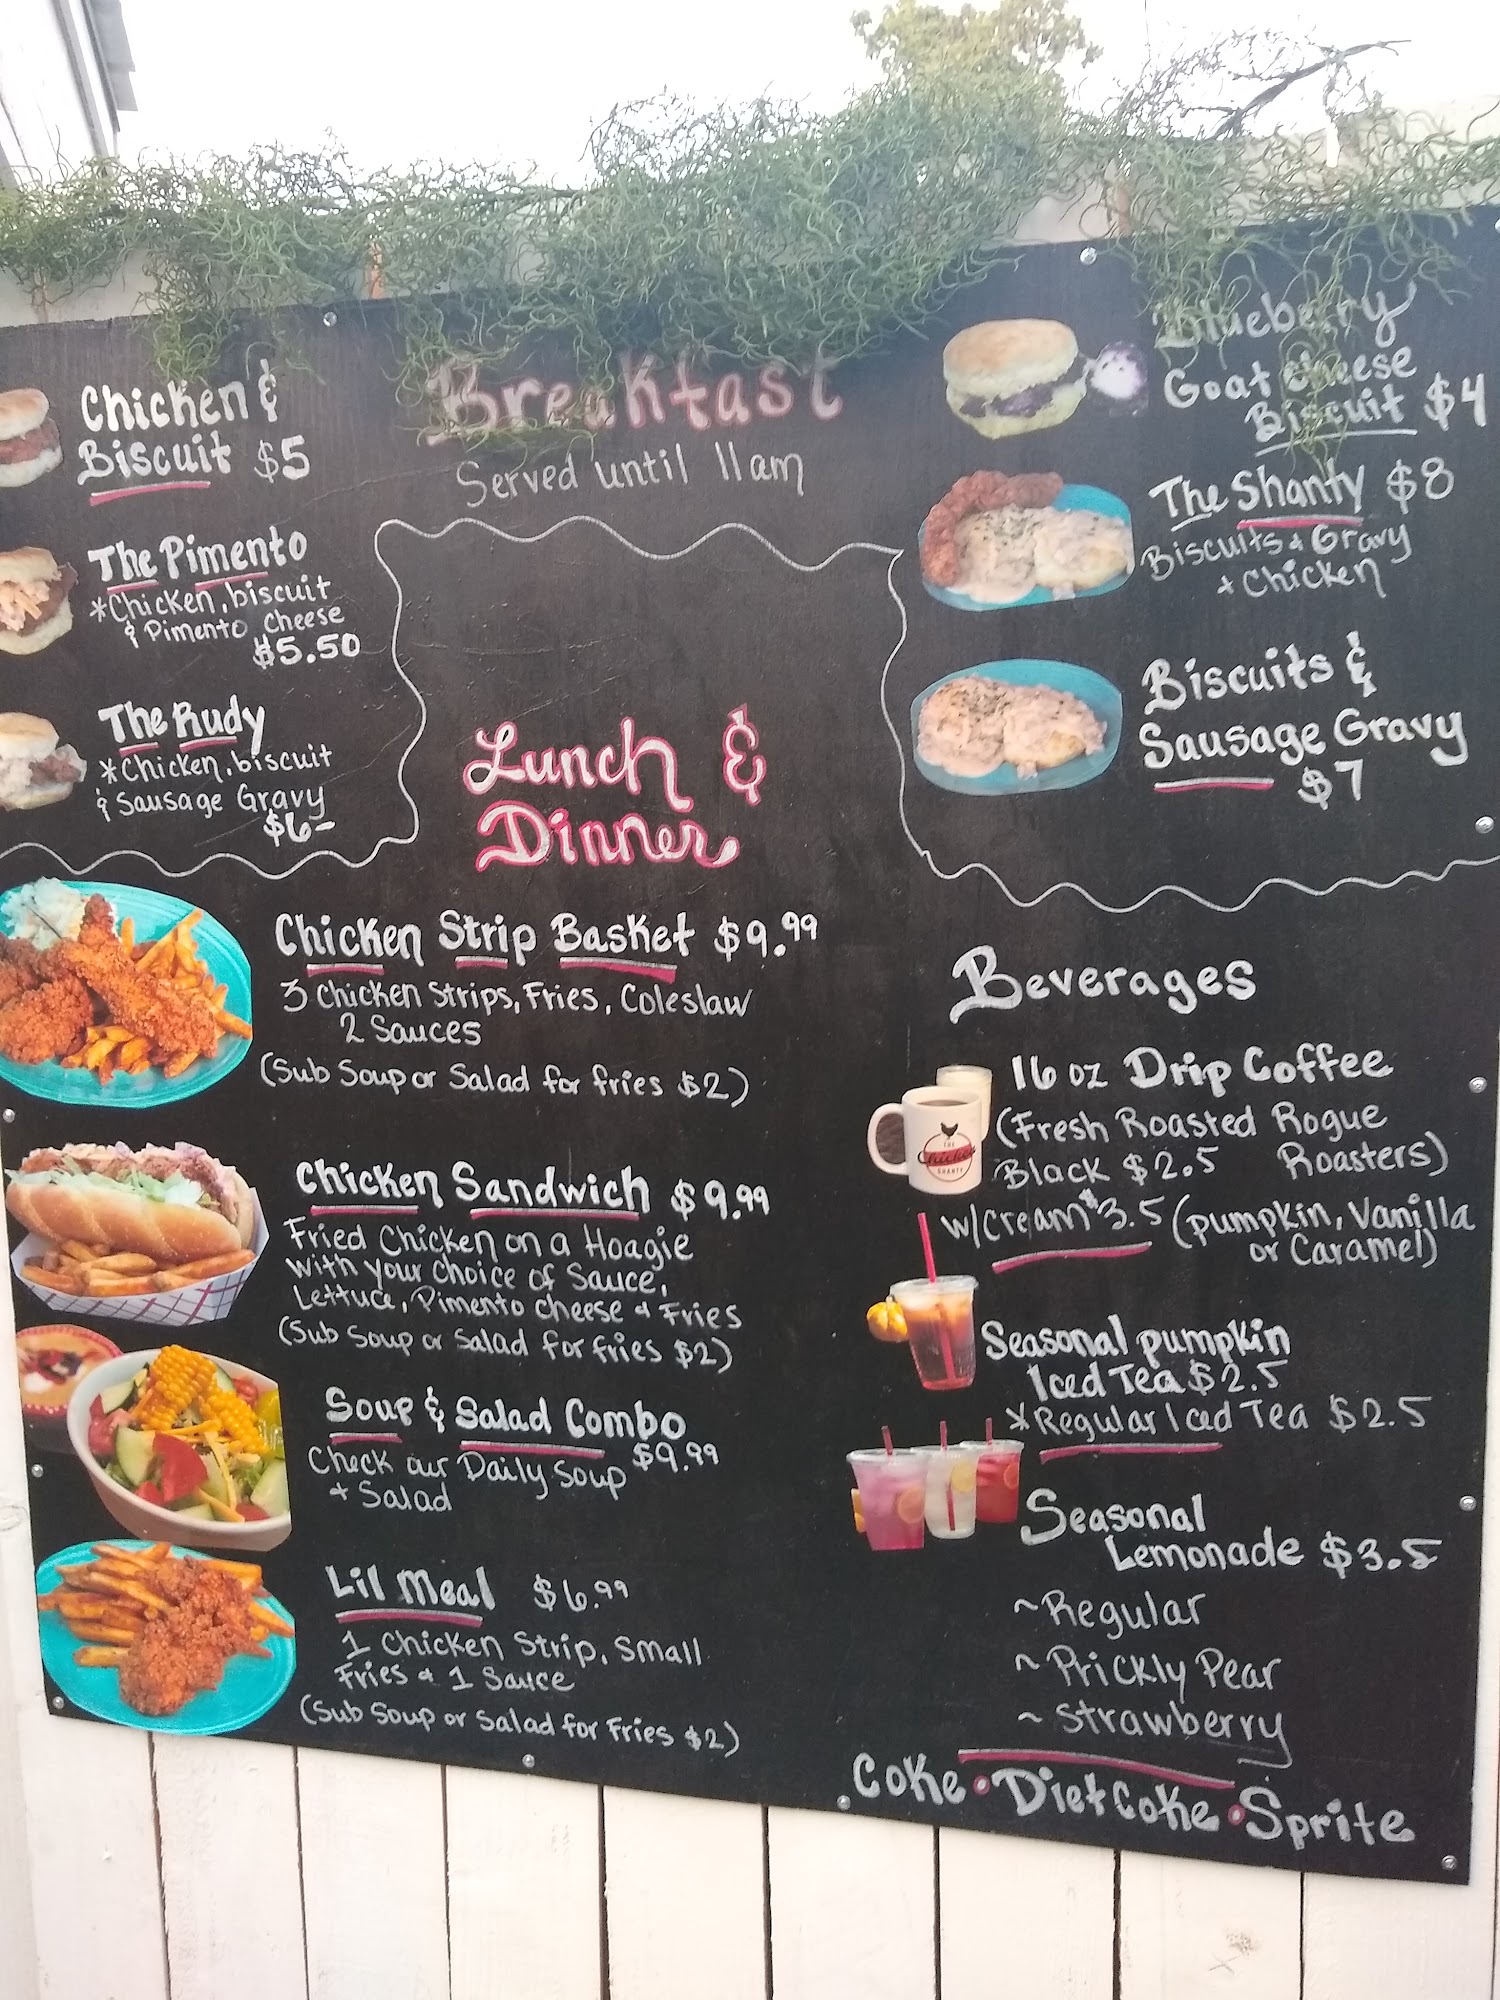 Breakfast
Served until 11am
Chicken &
Biscuit $5
The Pimento
*Chicken, biscuit
& Pimento cheese
$5.50
The Rudy
*Chicken, biscuit
& Sausage Gravy
$6-
Blueberry
Goat cheese
Biscuit $4
The Shanty $8
Biscuits & Gravy
+ Chicken
Biscuits &
Sausage Gravy
$7
Lunch &
Dinner
Chicken Strip Basket $9.99
3 Chicken Strips, Fries, Coleslaw
2 Sauces
(Sub Soup or Salad for fries $2)
Chicken Sandwich $9.99
Fried Chicken on a Hoagie
with your choice of Sauce,
Lettuce, Pimento cheese & Fries
(Sub Soup or Salad for fries $2)
Soup & Salad Combo
$9.99
Check our Daily Soup
+ Salad
Lil Meal $6.99
1 Chicken Strip, Small
Fries & 1 Sauce
(Sub Soup or Salad for Fries $2)
Beverages
16 oz Drip Coffee
(Fresh Roasted Rogue
Roasters)
Black $2.5
w/Cream $3.5 (pumpkin, Vanilla
or Caramel)
THE
Chicken
SHANTY
Seasonal pumpkin
Iced Tea $2.5
*Regular Iced Tea $2.5
Seasonal
Lemonade $3.5
~Regular
~Prickly Pear
~Strawberry
Coke • Diet Coke • Sprite